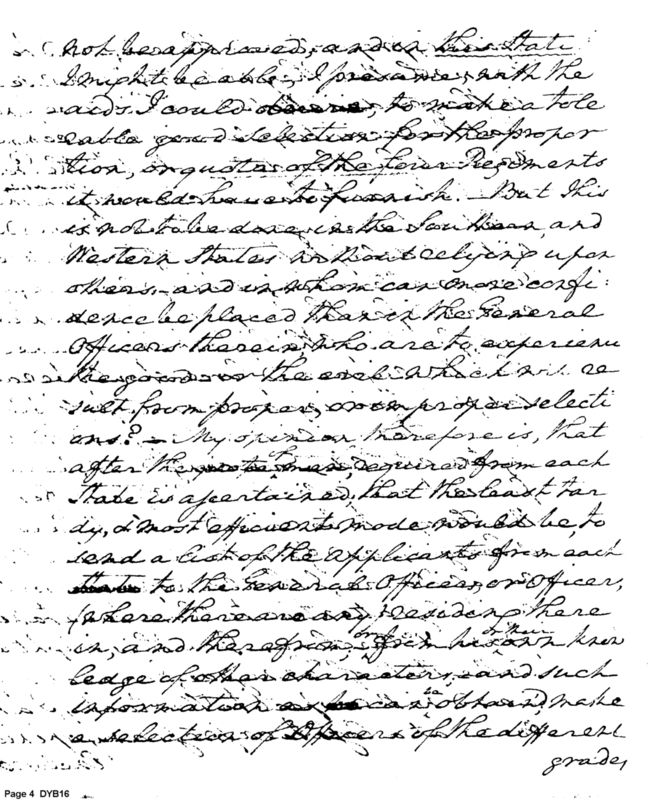 not be approved, and in this State
I might be able, I presume, with the
aids I could to make a tole
rable good selection for the propor
tion, or quotas of the four Regiments
it would have to furnish. – But this
is not to be done in the Southern, and
Western States without relying upon
others – and in whom can more confi:
dence be placed than in the General
Officers therein, who are to experience
the good or the evil which will re
sult from proper, or improper selecti
ons? – My opinion therefore is, that
after the required from each
State is ascertained, that the least tar
dy, & most efficient mode would be, to
send a list of the applicants from each
State to the General Officers, or Officer,
(where there are any) residing there
in, and therefrom, or from his or their own know
ledge of other characters, and such
information as he can obtain make
a selection of Officers of the different
grades
Page 4 DYB16